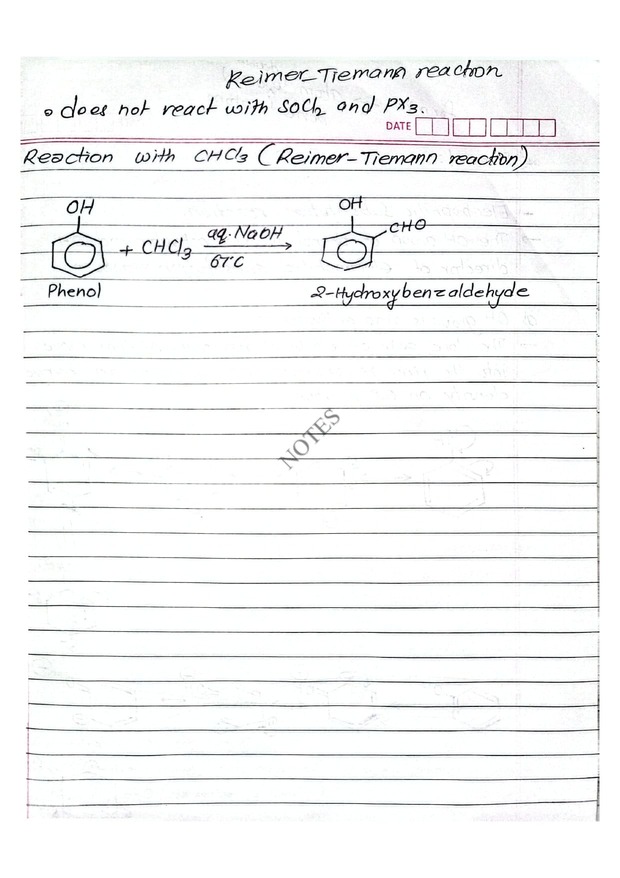 Reimer-Tiemann reaction
• does not react with SOCl2 and PX3.
DATE
Reaction with CHCl3 (Reimer-Tiemann reaction)
OH + CHCl3 aq. NaOH 67°C → OH CHO
Phenol 2-Hydroxybenzaldehyde
NOTES